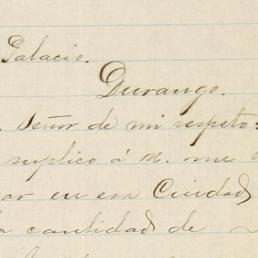 Palacio.
Durango.
Señor de mi respeto:
suplico á U. me
en esa Ciudad
cantidad de